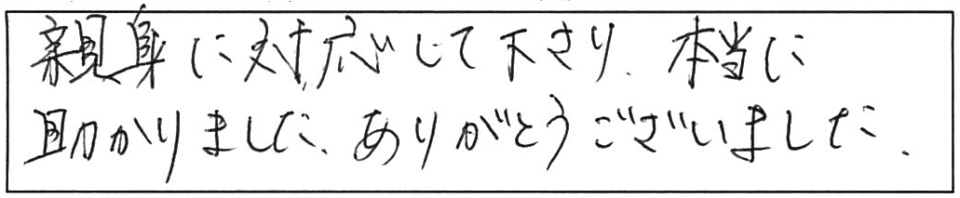 親身に対応して下さり、本当に
助かりました、ありがとうございました。